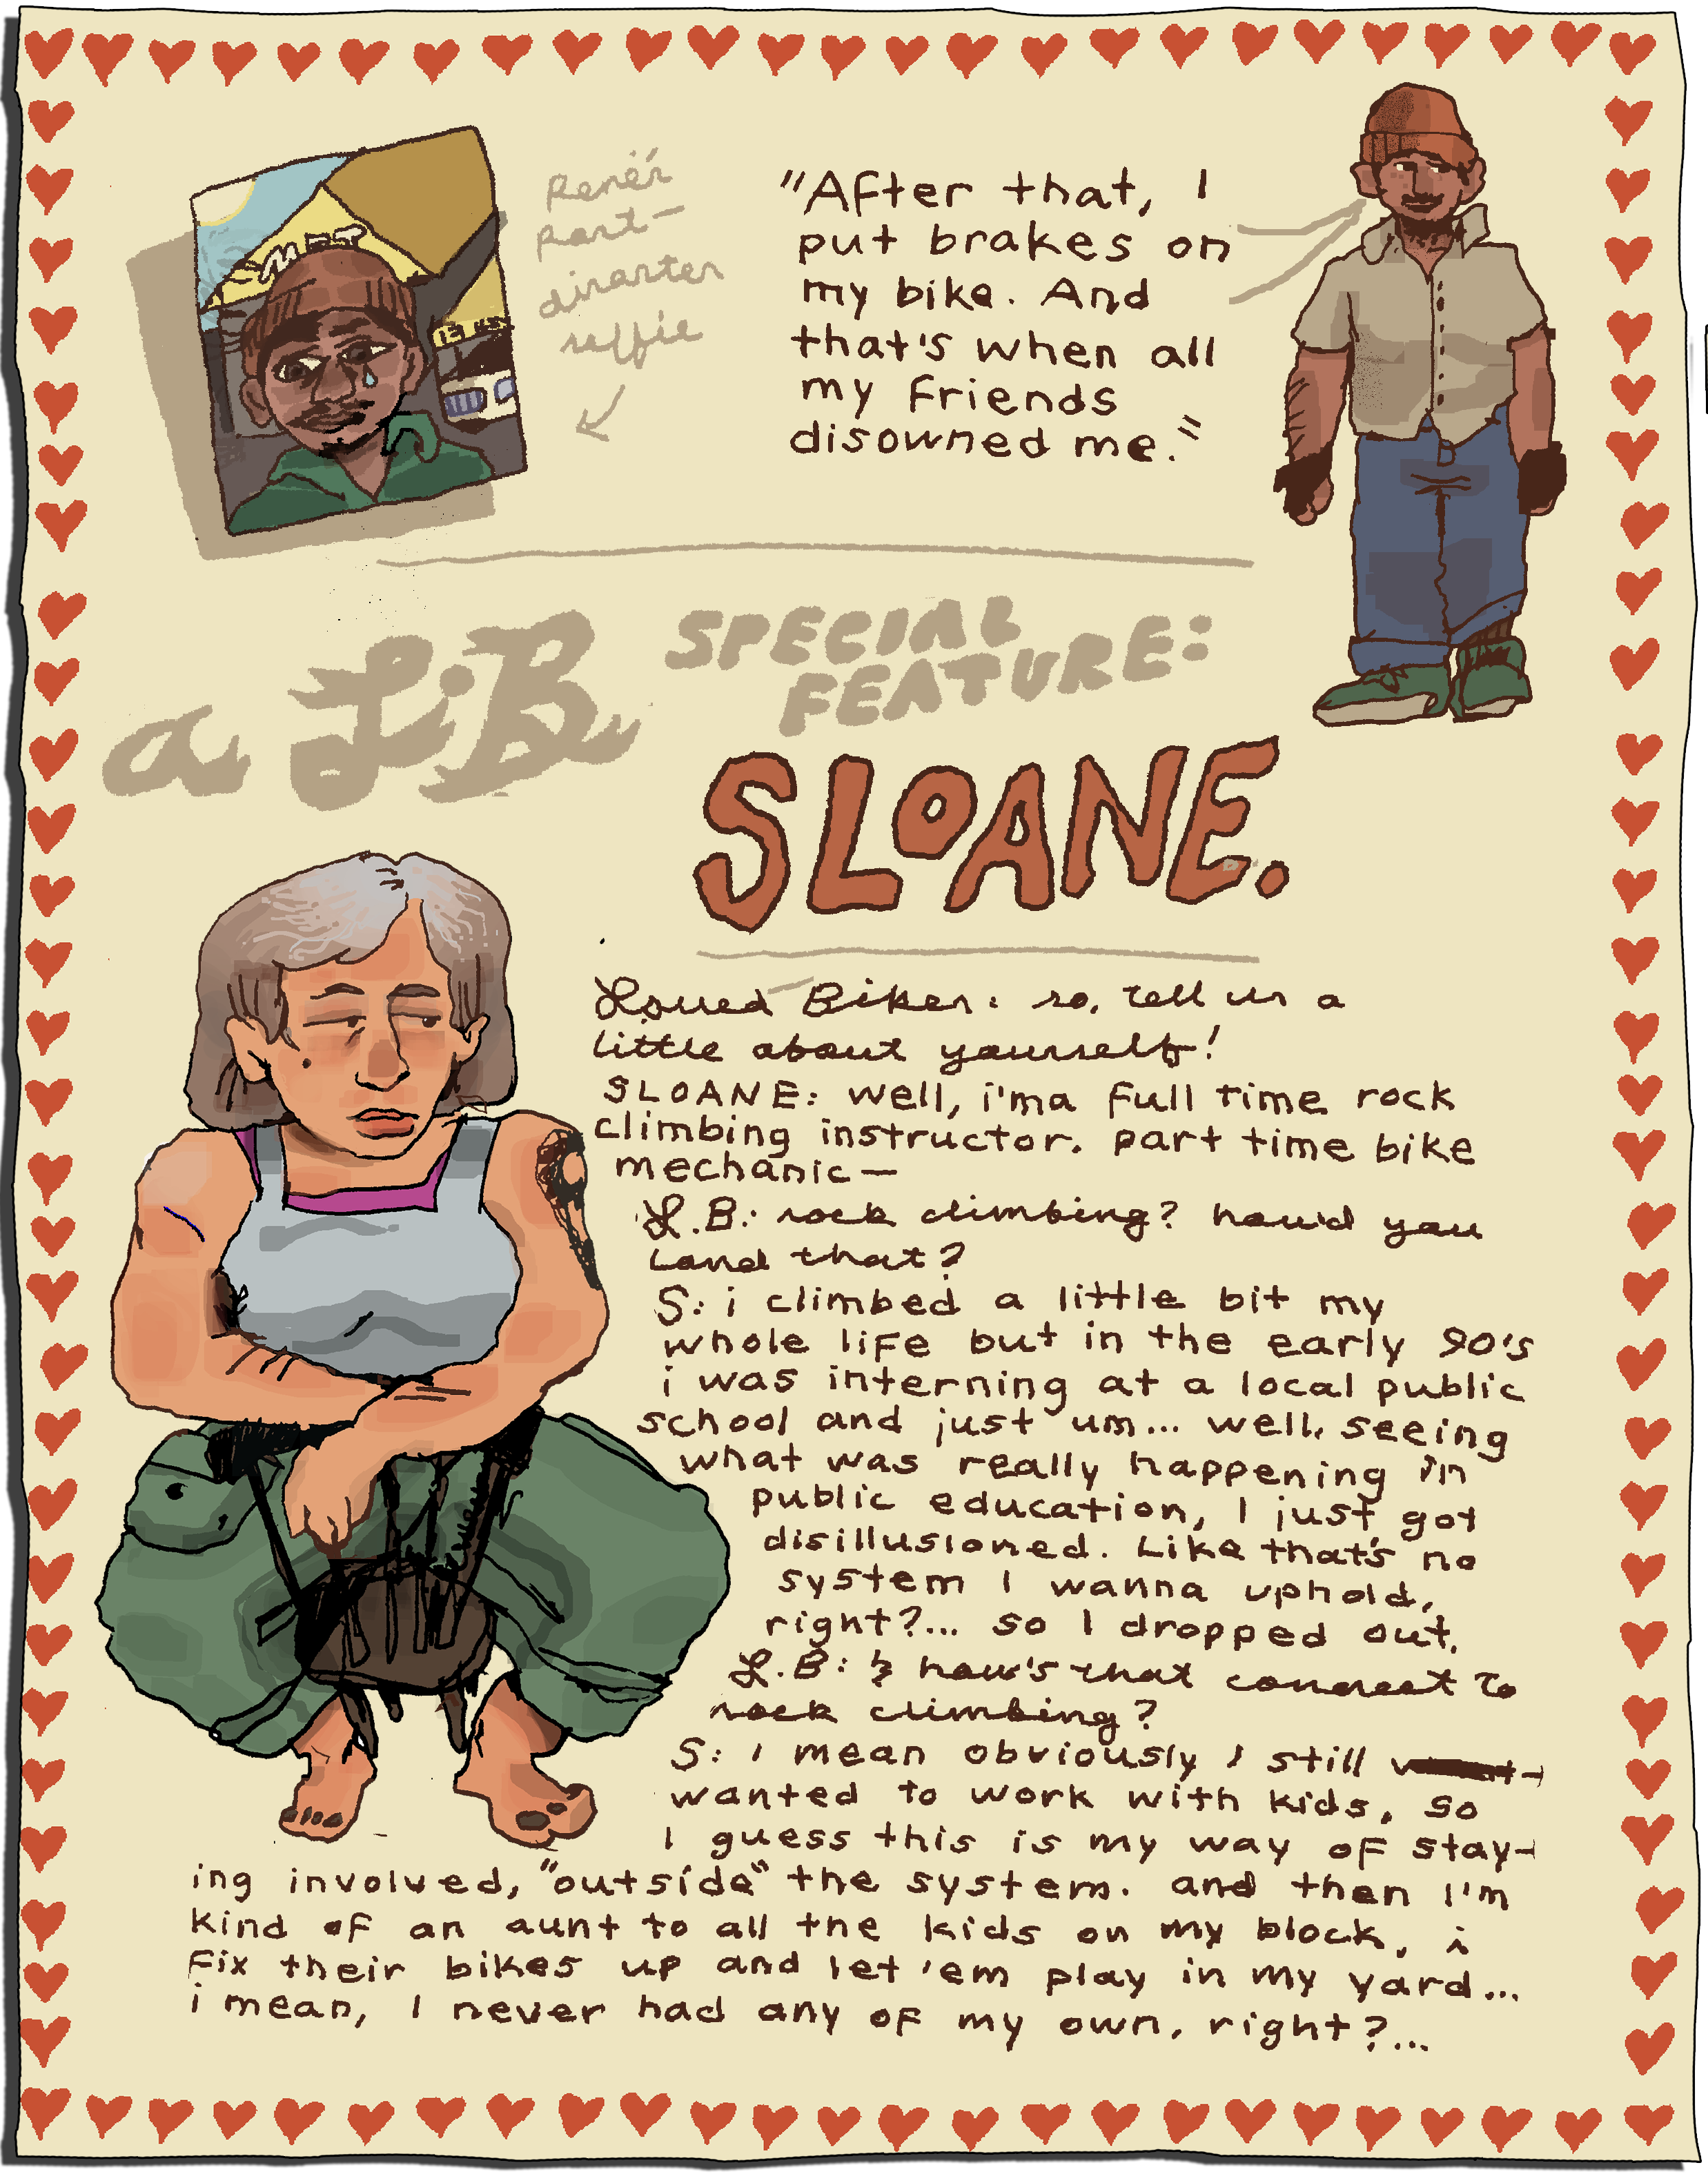 René's
Post-
disaster
selfie
MART
"After that, I
put brakes on
my bike. And
that's when all
my friends
disowned me."
a LiB
SPECIAL
FEATURE:
SLOANE.
Loved Biker: so, tell us a
little about yourself!
SLOANE: well, i'ma full time rock
climbing instructor. part time bike
mechanic—
L.B.: rock climbing? how'd you
land that?
S: i climbed a little bit my
whole life but in the early 90's
i was interning at a local public
school and just um... well, seeing
what was really happening in
public education, I just got
disillusioned. Like that's no
system I wanna uphold,
right?... so I dropped out.
L.B: & how's that connect to
rock climbing?
S: I mean obviously I still
wanted to work with kids, so
I guess this is my way of stay-
ing involved, "outside" the system. and then I'm
kind of an aunt to all the kids on my block, i
fix their bikes up and let 'em play in my yard...
i mean, I never had any of my own, right?...